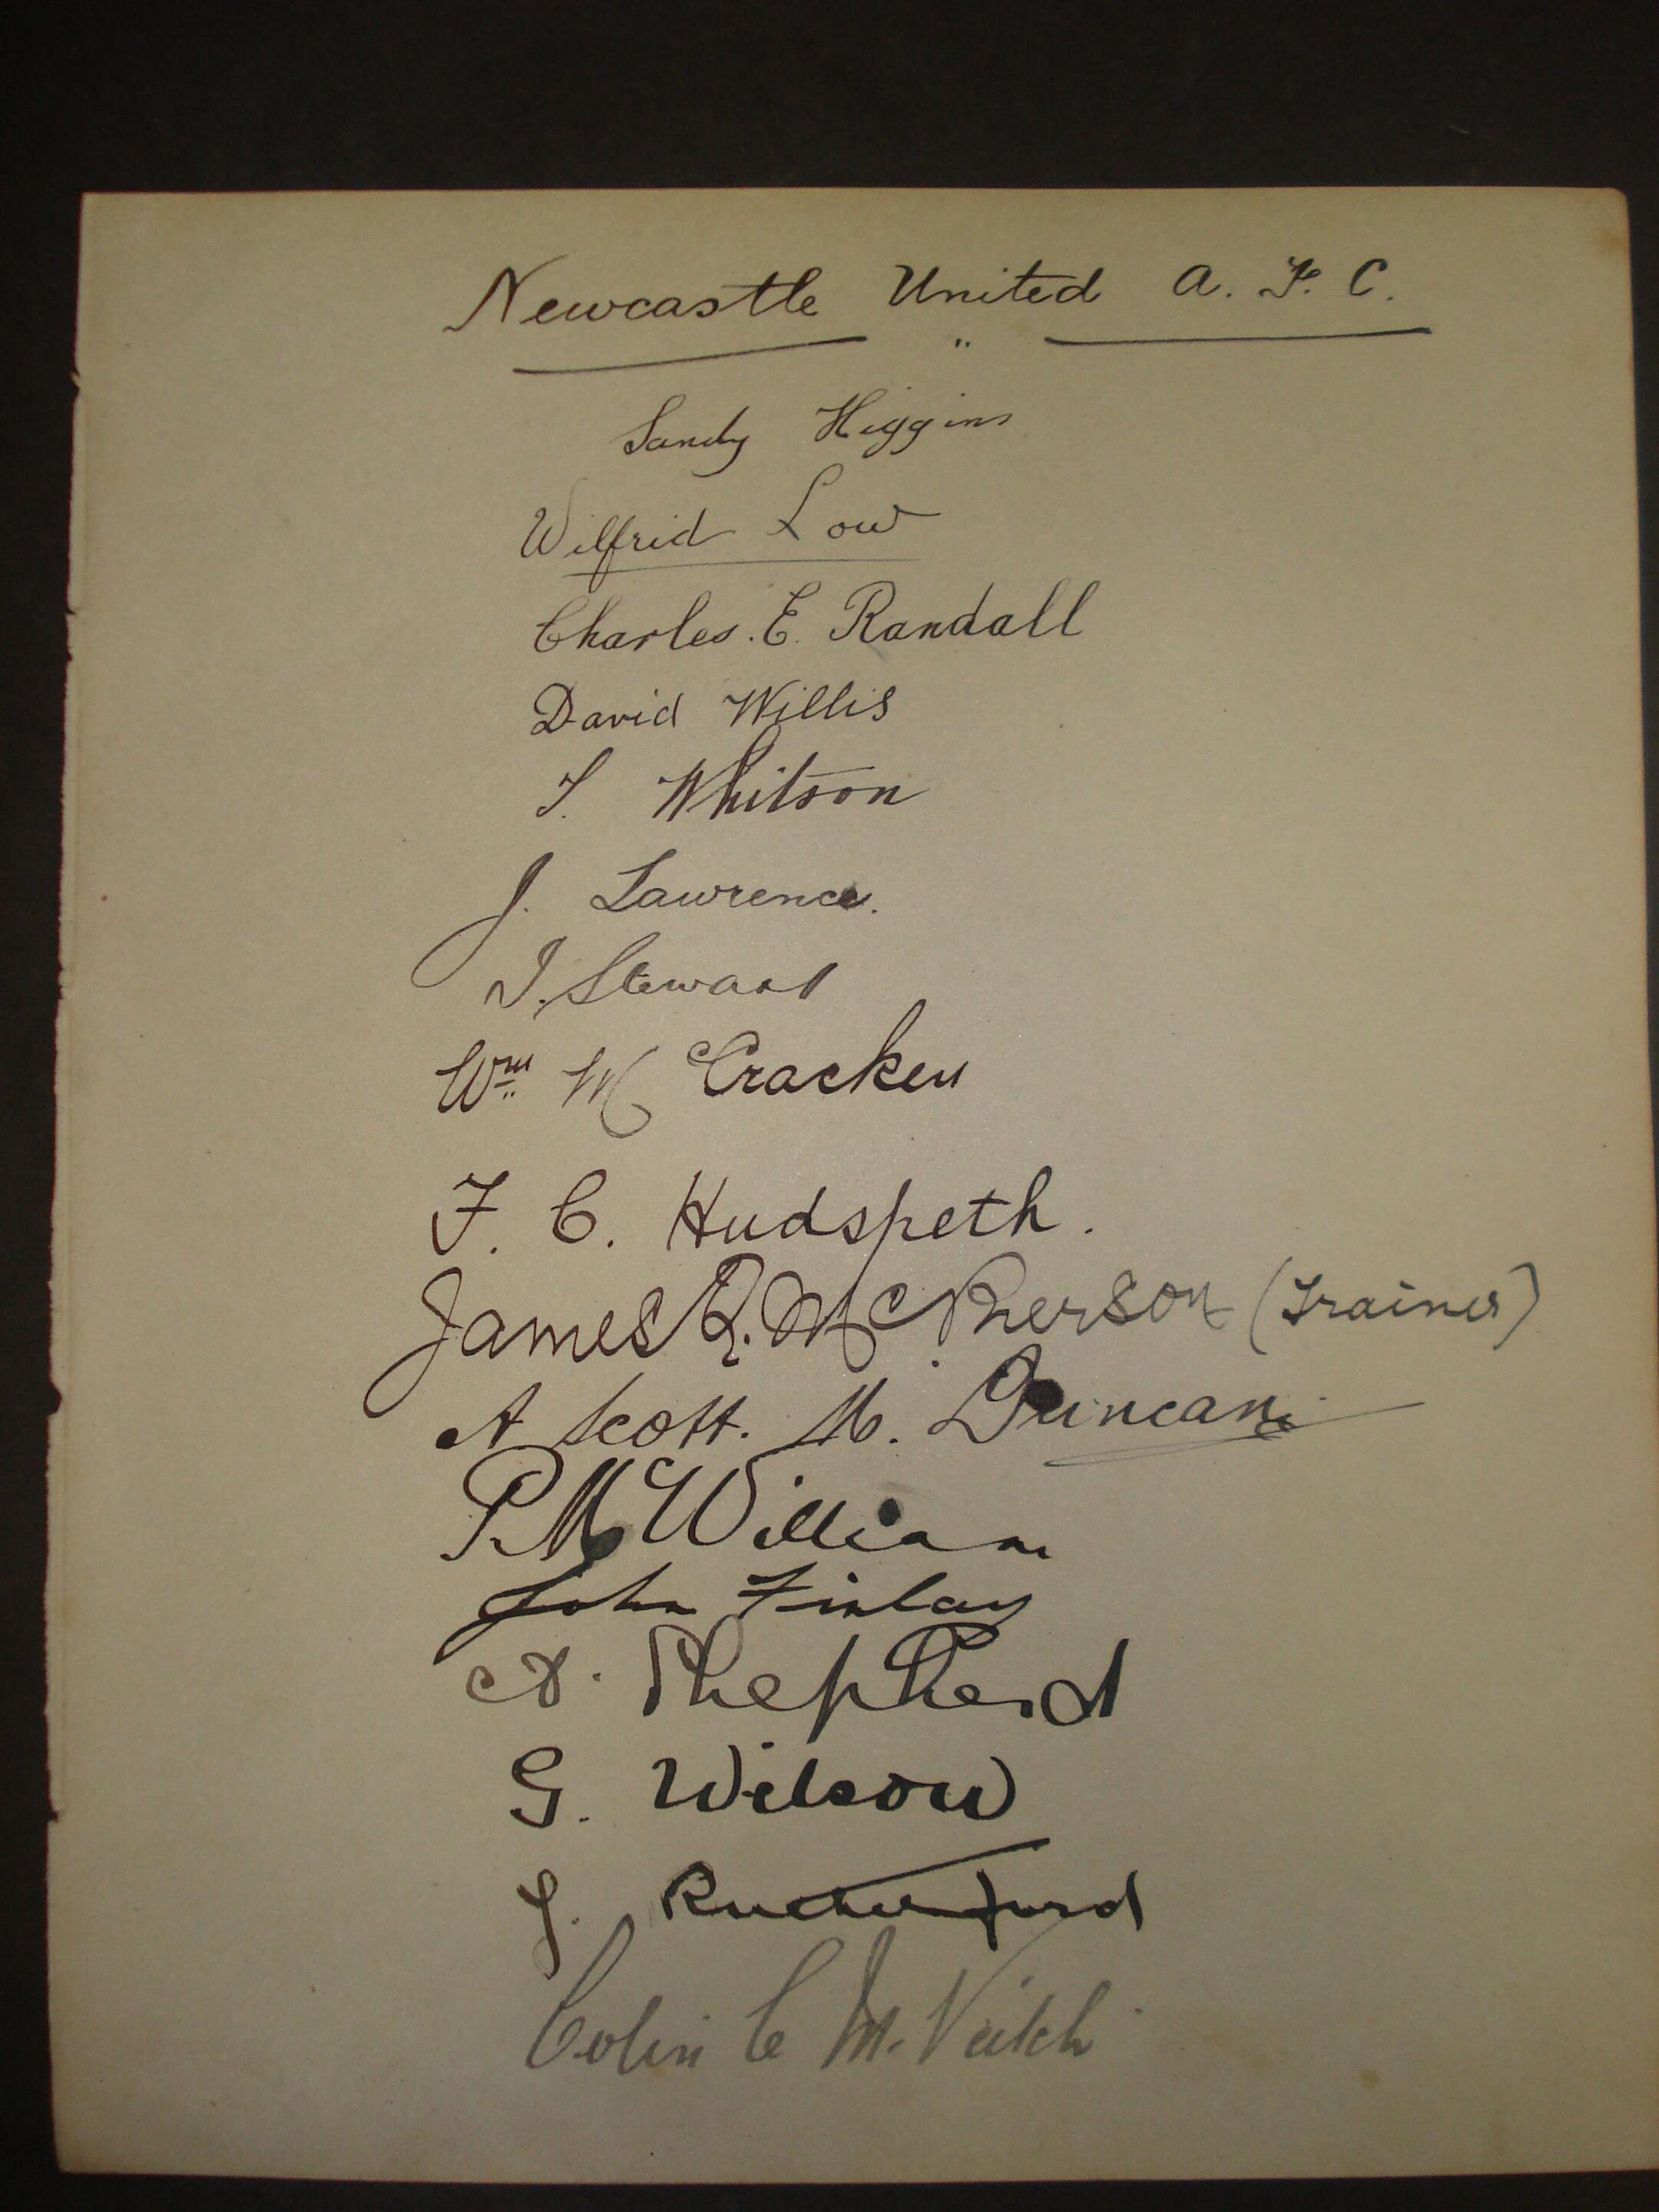 Newcastle United A. F. C.
Sandy Higgins
Wilfrid Low
Charles. E. Randall
David Willis
T. Whitson
J. Lawrence.
J. Stewart
Wm Mc Cracken
F. C. Hudspeth.
James Q. McPherson (Trainer)
A Scott. M. Duncan
P. McWilliam
John Finlay
A. Shepherd
G. Wilson
J. Rutherford
Colin C M. Veitch